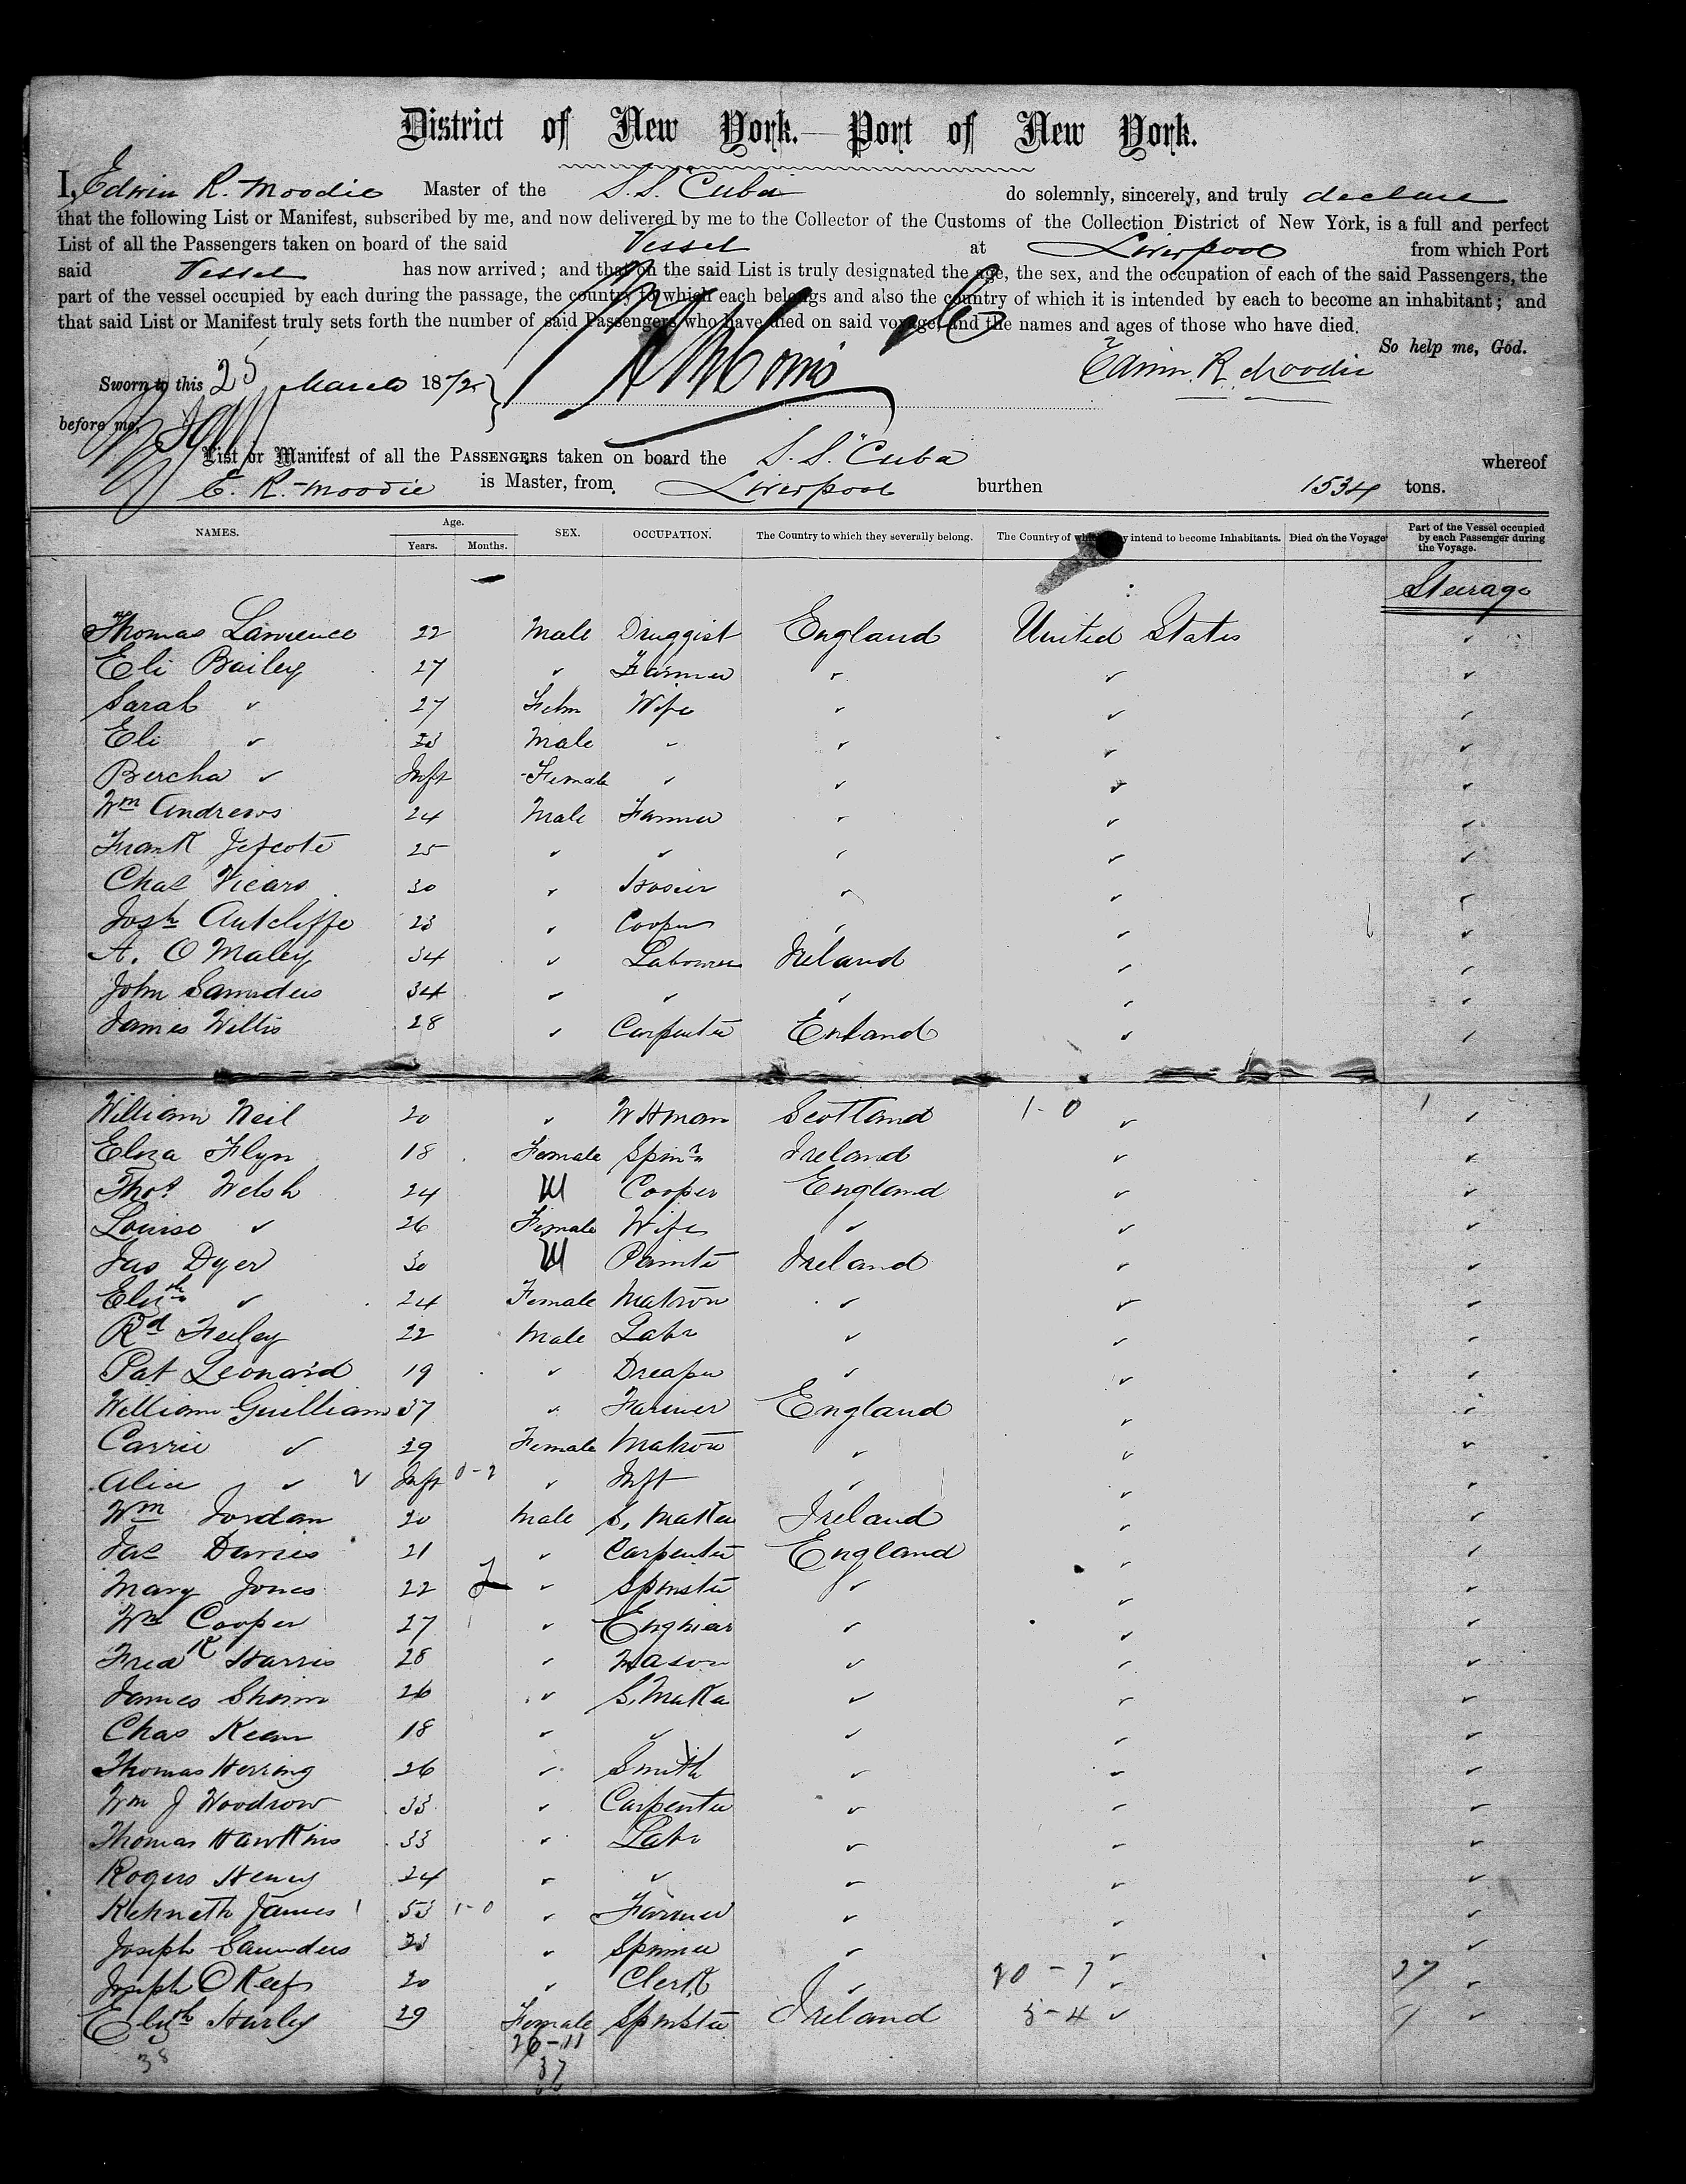 District of New York.—Port of New York.
I, Edwin R. Moodie Master of the S.S. Cuba do solemnly, sincerely, and truly declare
that the following List or Manifest, subscribed by me, and now delivered by me to the Collector of the Customs of the Collection District of New York, is a full and perfect
List of all the Passengers taken on board of the said Vessel at Liverpool from which Port
said Vessel has now arrived; and that on the said List is truly designated the age, the sex, and the occupation of each of the said Passengers, the
part of the vessel occupied by each during the passage, the country to which each belongs and also the country of which it is intended by each to become an inhabitant; and
that said List or Manifest truly sets forth the number of said Passengers who have died on said voyage, and the names and ages of those who have died.
So help me, God.
Sworn to this 25 March 1872 Edwin. R. Moodie
before me,
List or Manifest of all the PASSENGERS taken on board the S.S. "Cuba whereof
E. R. Moodie is Master, from Liverpool burthen 1534 tons.
NAMES. Age. Years. Months. SEX. OCCUPATION. The Country to which they severally belong. The Country of which they intend to become Inhabitants. Died on the Voyage Part of the Vessel occupied by each Passenger during the Voyage.
Steerage
Thomas Lawrence 22 Male Druggist England United States ✓
Eli Bailey 27 ✓ Farmer ✓ ✓ ✓
Sarah ✓ 27 Fem Wife ✓ ✓ ✓
Eli ✓ Male ✓ ✓ ✓ ✓
Bercha ✓ Inft Female ✓ ✓ ✓ ✓
Wm Andrews 24 Male Farmer ✓ ✓ ✓
Frank Jefcote 25 ✓ ✓ ✓ ✓ ✓
Chas Vicars 30 ✓ Hosier ✓ ✓ ✓
Josh Autcliffe 23 ✓ Cooper ✓ ✓ ✓
A. O Maley 34 ✓ Labourer Ireland ✓ ✓
John Saunders 34 ✓ ✓ ✓ ✓ ✓
James Willis 28 ✓ Carpenter Enland ✓ ✓
William Neil 20 ✓ W Hman Scotland 1-0 ✓ 1 ✓
Eliza Flyn 18 Female Spinr Ireland ✓ ✓
Thos Welsh 24 M Cooper England ✓ ✓
Louise ✓ 26 Female Wife ✓ ✓ ✓
Jas Dyer 30 M Painter Ireland ✓ ✓
Elizth ✓ 24 Female Matron ✓ ✓ ✓
Rd Feeley 22 Male Labr ✓ ✓ ✓
Pat Leonard 19 ✓ Dreaper ✓ ✓ ✓
William Guilliam 37 ✓ Farmer England ✓ ✓
Carrie ✓ 39 Female Matron ✓ ✓ ✓
Alice ✓ ✓ Inft 0-2 ✓ Inft ✓ ✓ ✓
Wm Jordan 20 Male S. Maker Ireland ✓ ✓
Jas Davies 21 ✓ Carpenter England ✓ ✓
Mary Jones 22 ✓ Spinster ✓ ✓ ✓
Wm Cooper 27 ✓ Enginear ✓ ✓ ✓
Fredk Harris 28 ✓ Mason ✓ ✓ ✓
James 26 ✓ S. Maker ✓ ✓ ✓
Chas Kean 18 ✓ ✓ ✓ ✓ ✓
Thomas Herring 26 ✓ Smith ✓ ✓ ✓
Wm J Woodrow 33 ✓ Carpenter ✓ ✓ ✓
Thomas Hawkins 33 ✓ Labr ✓ ✓ ✓
Rogers Henry 24 ✓ ✓ ✓ ✓ ✓
Kehneth James 53 1-0 ✓ Farmer ✓ ✓ ✓
Joseph Saunders 23 ✓ Spinner ✓ ✓ ✓
Joseph O Keefe 20 ✓ Clerk ✓ 20-7 ✓ 27 ✓
Elizth Hurley 29 Female Spinster Ireland 3-4 ✓ 7 ✓
38 26-11
37